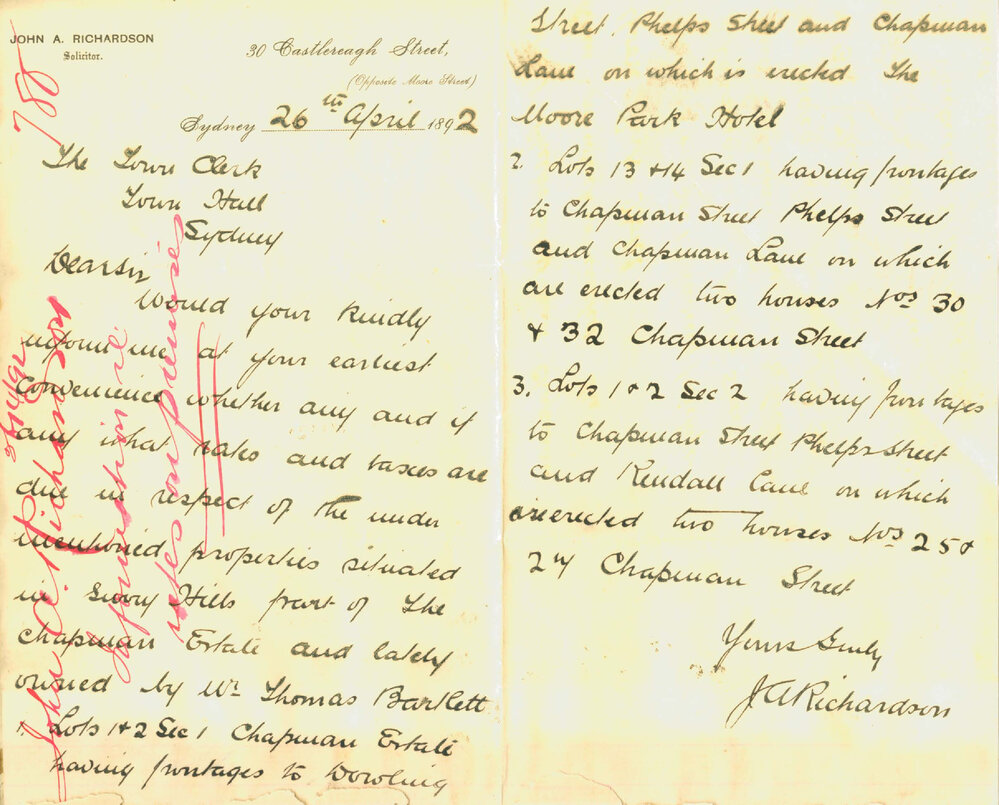 JOHN A. RICHARDSON
Solicitor.
30 Castlereagh Street,
(Opposite Moore Street)
Sydney 26th April 1892
The Town Clerk
Town Hall
Sydney
Dear Sir
Would your kindly
inform me at your earliest
convenience whether any and if
any what rates and taxes are
due in respect of the under
mentioned properties situated
in Surry Hills part of The
Chapman Estate and lately
owned by Mr Thomas Bartlett
1. Lots 1 & 2 Sec 1 Chapman Estate
having frontages to Dowling
Street, Phelps Street and Chapman
Lane on which is erected The
Moore Park Hotel
2. Lots 13 & 14 Sec 1 having frontages
to Chapman Street Phelps Street
and Chapman Lane on which
are erected two houses Nos 30
& 32 Chapman Street
3. Lots 1 & 2 Sec 2 having frontages
to Chapman Street Phelps Street
and Kendall Lane on which
are erected two houses Nos 25 &
27 Chapman Street
Yours truly
J A Richardson
780
John A. Richardson
rates on premises